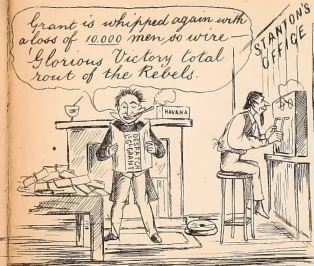 Grant is whipped again with
a loss of 10.000 men, so wire
Glorious Victory total
rout of the Rebels.
STANTON'S
OFFICE
HAVANA
DESPATCH
GRANT